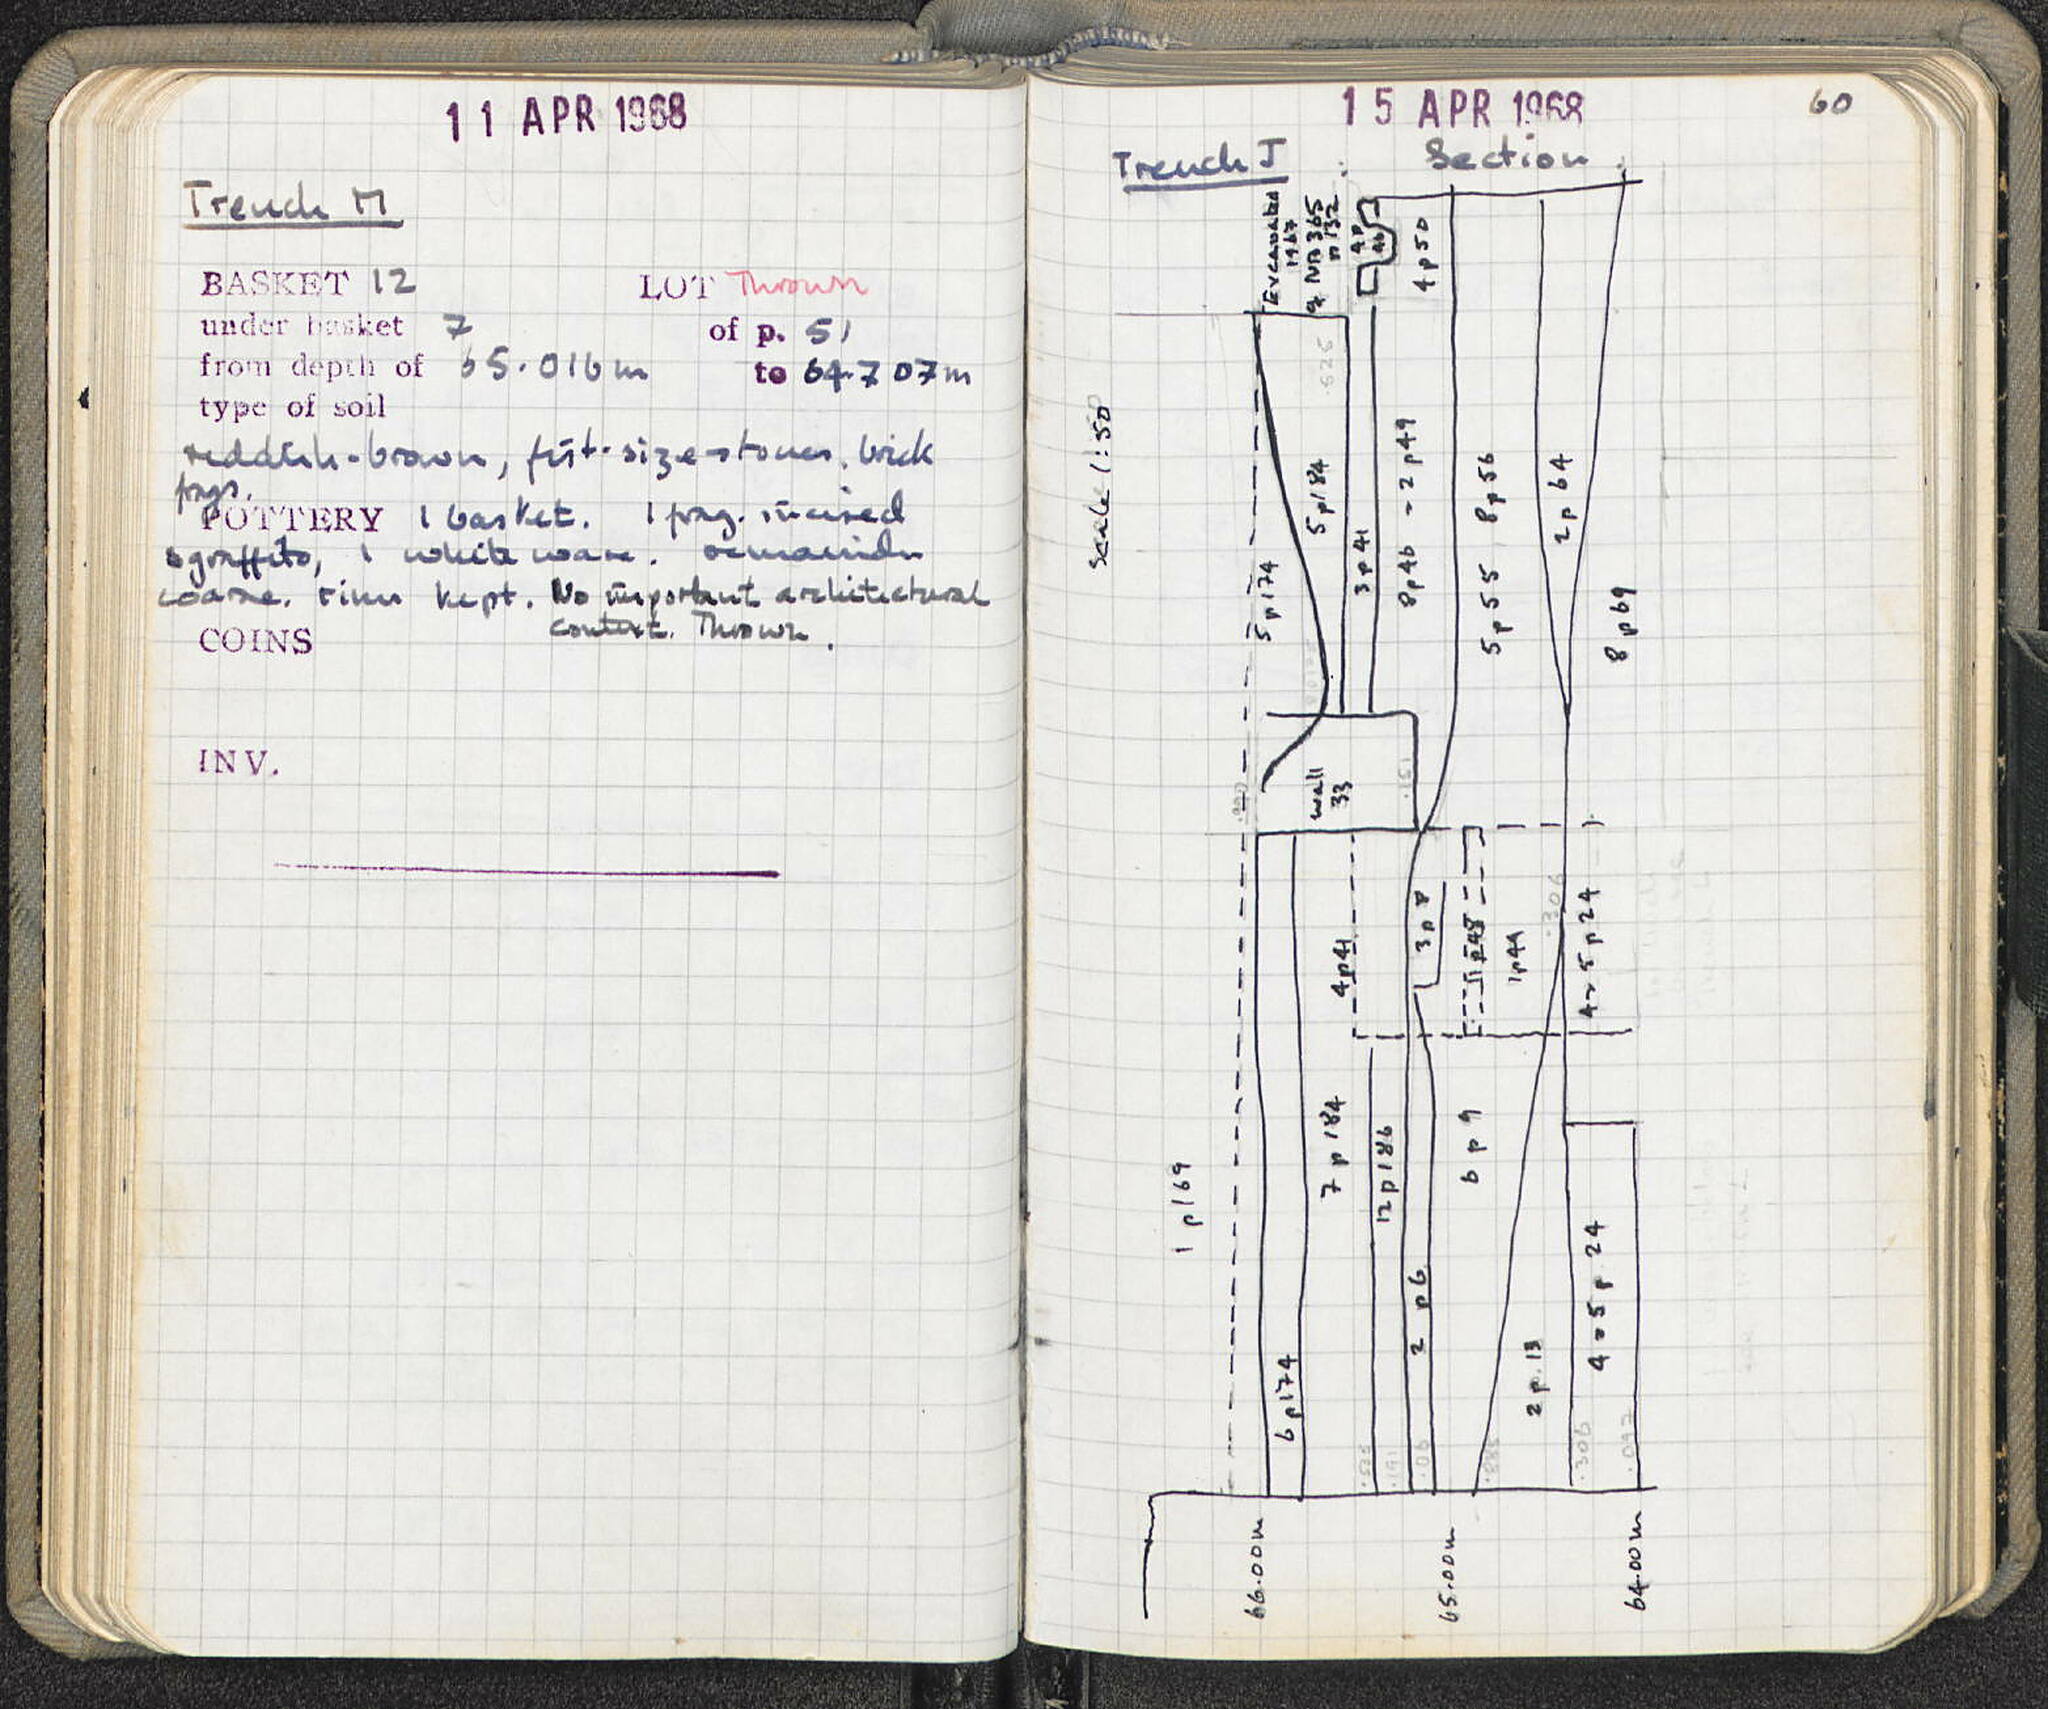 11 APR 1968
Trench M
BASKET 12 LOT Thrown
under basket 7 of p. 51
from depth of 65.016m to 64.707m
type of soil
reddish-brown, fist-size stones, brick
frags.
POTTERY 1 basket. 1 frag. incised
sgraffito, 1 white ware. remainder
coarse. rims kept. No important architectural
context. Thrown.
COINS
INV.
15 APR 1968
60
Trench J : Section
Excavated
1967
NB 365
p 132
4p
46
4p50
Scale 1:50
.525
5p184
5p174
3p41
8p46 - 2p49
5p55 8p56
2p64
8p69
wall
33
.151
4p41
3p8
1p48
1p49
.306
4=5p24
1p169
7p184
12p186
6p9
2p6
6p174
2p.13
4=5p.24
.525
.191
.06
.306
.097
66.00m
65.00m
64.00m